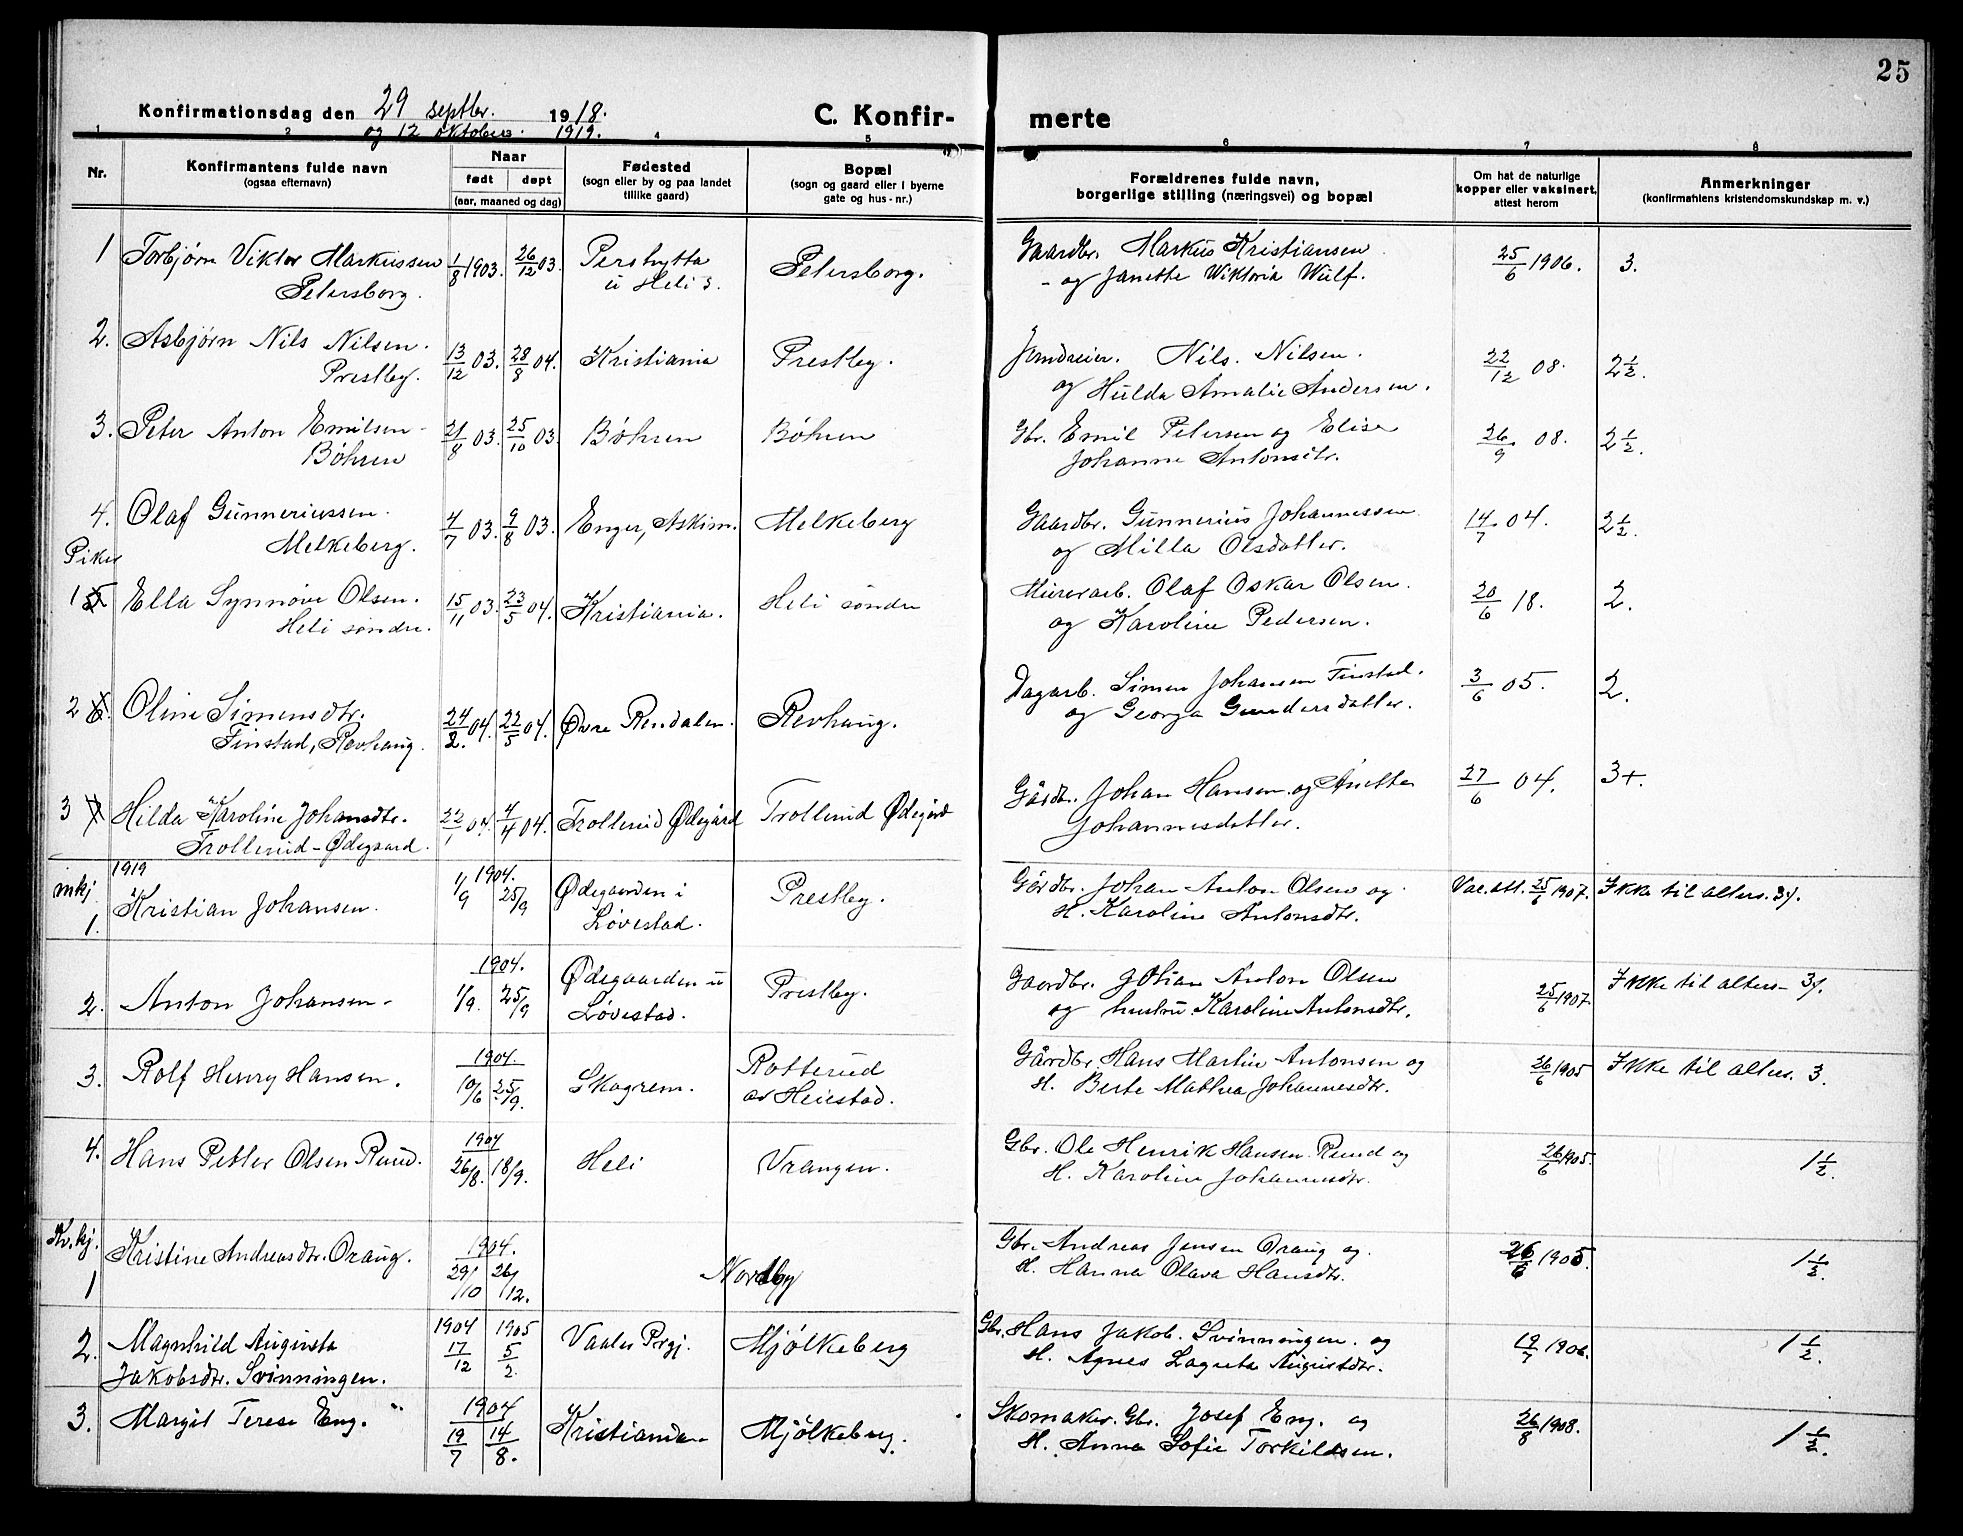 25
Konfirmationsdag den 29 septbr. 1918.
og 12 oktober 1919.
C. Konfirmerte
1 2 3 4 5 6 7 8
Nr.
Konfirmantens fulde navn
(ogsaa efternavn)
Naar
født døpt
(aar, maaned og dag)
Fødested
(sogn eller by og paa landet
tillike gaard)
Bopæl
(sogn og gaard eller i byerne
gate og hus-nr.)
Forældrenes fulde navn,
borgerlige stilling (næringsvei) og bopæl
Om hat de naturlige
kopper eller vaksinert,
attest herom
Anmerkninger
(konfirmantens kristendomskundskap m. v.)
1 Torbjørn Viktor Markussen 1/8 1903. 26/12 03. Pershytta Petersborg. Gaardbr. Markus Kristiansen 25/6 1906. 3.
Petersborg. u Heli s. - og Janette Wiktoria Wulf.
2. Asbjørn Nils Nilsen. 13/12 03. 28/8 04. Kristiania Prestby. Jordeier. Nils. Nilsen. 22/12 08. 2 1/2.
Prestby. og Hulda Amalie Andersen.
3. Peter Anton Emilsen 21/8 03. 25/10 03. Bøhren Bøhren Gbr. Emil Petersen og Elise 26/9 08. 2 1/2.
Bøhren Johanne Antonsdtr.
4. Olaf Gunneriussen. 4/7 03. 9/8 03. Enger, Askim. Melkeberg Gaardbr. Gunnerius Johannessen 14/7 04. 2 1/2.
Melkeberg. og Milla Olsdatter.
Piker
1 5 Ella Synnøve Olsen. 15/11 03. 23/5 04. Kristiania. Heli søndre Murerarb. Olaf Oskar Olsen. 20/6 18. 2.
Heli søndre. og Karoline Pedersen.
2 6. Oline Simensdtr. 24/2. 04. 22/5 04. Øvre Rendalen. Revhaug. Dagarb. Simen Johansen Finstad. 3/6 05. 2.
Finstad, Revhaug. og Georga Gundersdatter.
3 7 Hilda Karoline Johansdtr. 22/1 04. 4/4 04. Trollerud Ødegård Trollerud Ødegård Gårdbr. Johan Hansen og Anette 27/6 04. 3+.
Trollerud-Ødegaard. Johannesdatter.
1919
mkj 1. Kristian Johansen. 1904. 1/9 25/9 Ødegaarden i Prestby. Gårdbr. Johan Anton Olsen og Vac.att. 25/6 1907. Ikke til alters. 3÷.
Løvestad. H. Karoline Antonsdtr.
2. Anton Johansen- 1904. 1/9. 25/9 Ødegaarden u Prestby. Gaardbr. Johan Anton Olsen 25/6 1907. Ikke til alters- 3÷.
Løvestad. og hustru Karoline Antonsdtr.
3. Rolf Henry Hansen. 1904. 10/6 25/9. Skogrem. Rotterud Gårdbr. Hans Martin Antonsen og 26/6 1905 Ikke til alters. 3.
av Heiestad. H. Berte Mathea Johannesdtr.
4. Hans Petter Olsen Ruud. 1904 26/8. 18/9. Heli Vrangen. Gbr. Ole Henrik Hansen Ruud og 26/6 1905. 1 1/2.
H. Karoline Johannesdtr.
Kv.kj. 1 Kristine Andreasdtr. Oraug. 1904. 29/10 26/12. Nordby Gbr. Andreas Jensen Oraug og 26/6 1905. 1 1/2.
H. Hanna Olava Hansdtr.
2. Magnhild Augusta 1904 17/12 1905 5/2. Vaaler Prgj. Mjølkeberg Gbr. Hans Jakob. Svinningen. og 19/7 1906. 1 1/2.
Jakobsdtr. Svinningen. H. Agnes Lagreta Augustdtr.
3. Margit Terese Eng. 1904 19/7 14/8. Kristiania Mjølkeberg. Skomaker. Gbr. Josef Eng. og 26/8 1908. 1 1/2.
H. Anna Sofie Torkildsen.